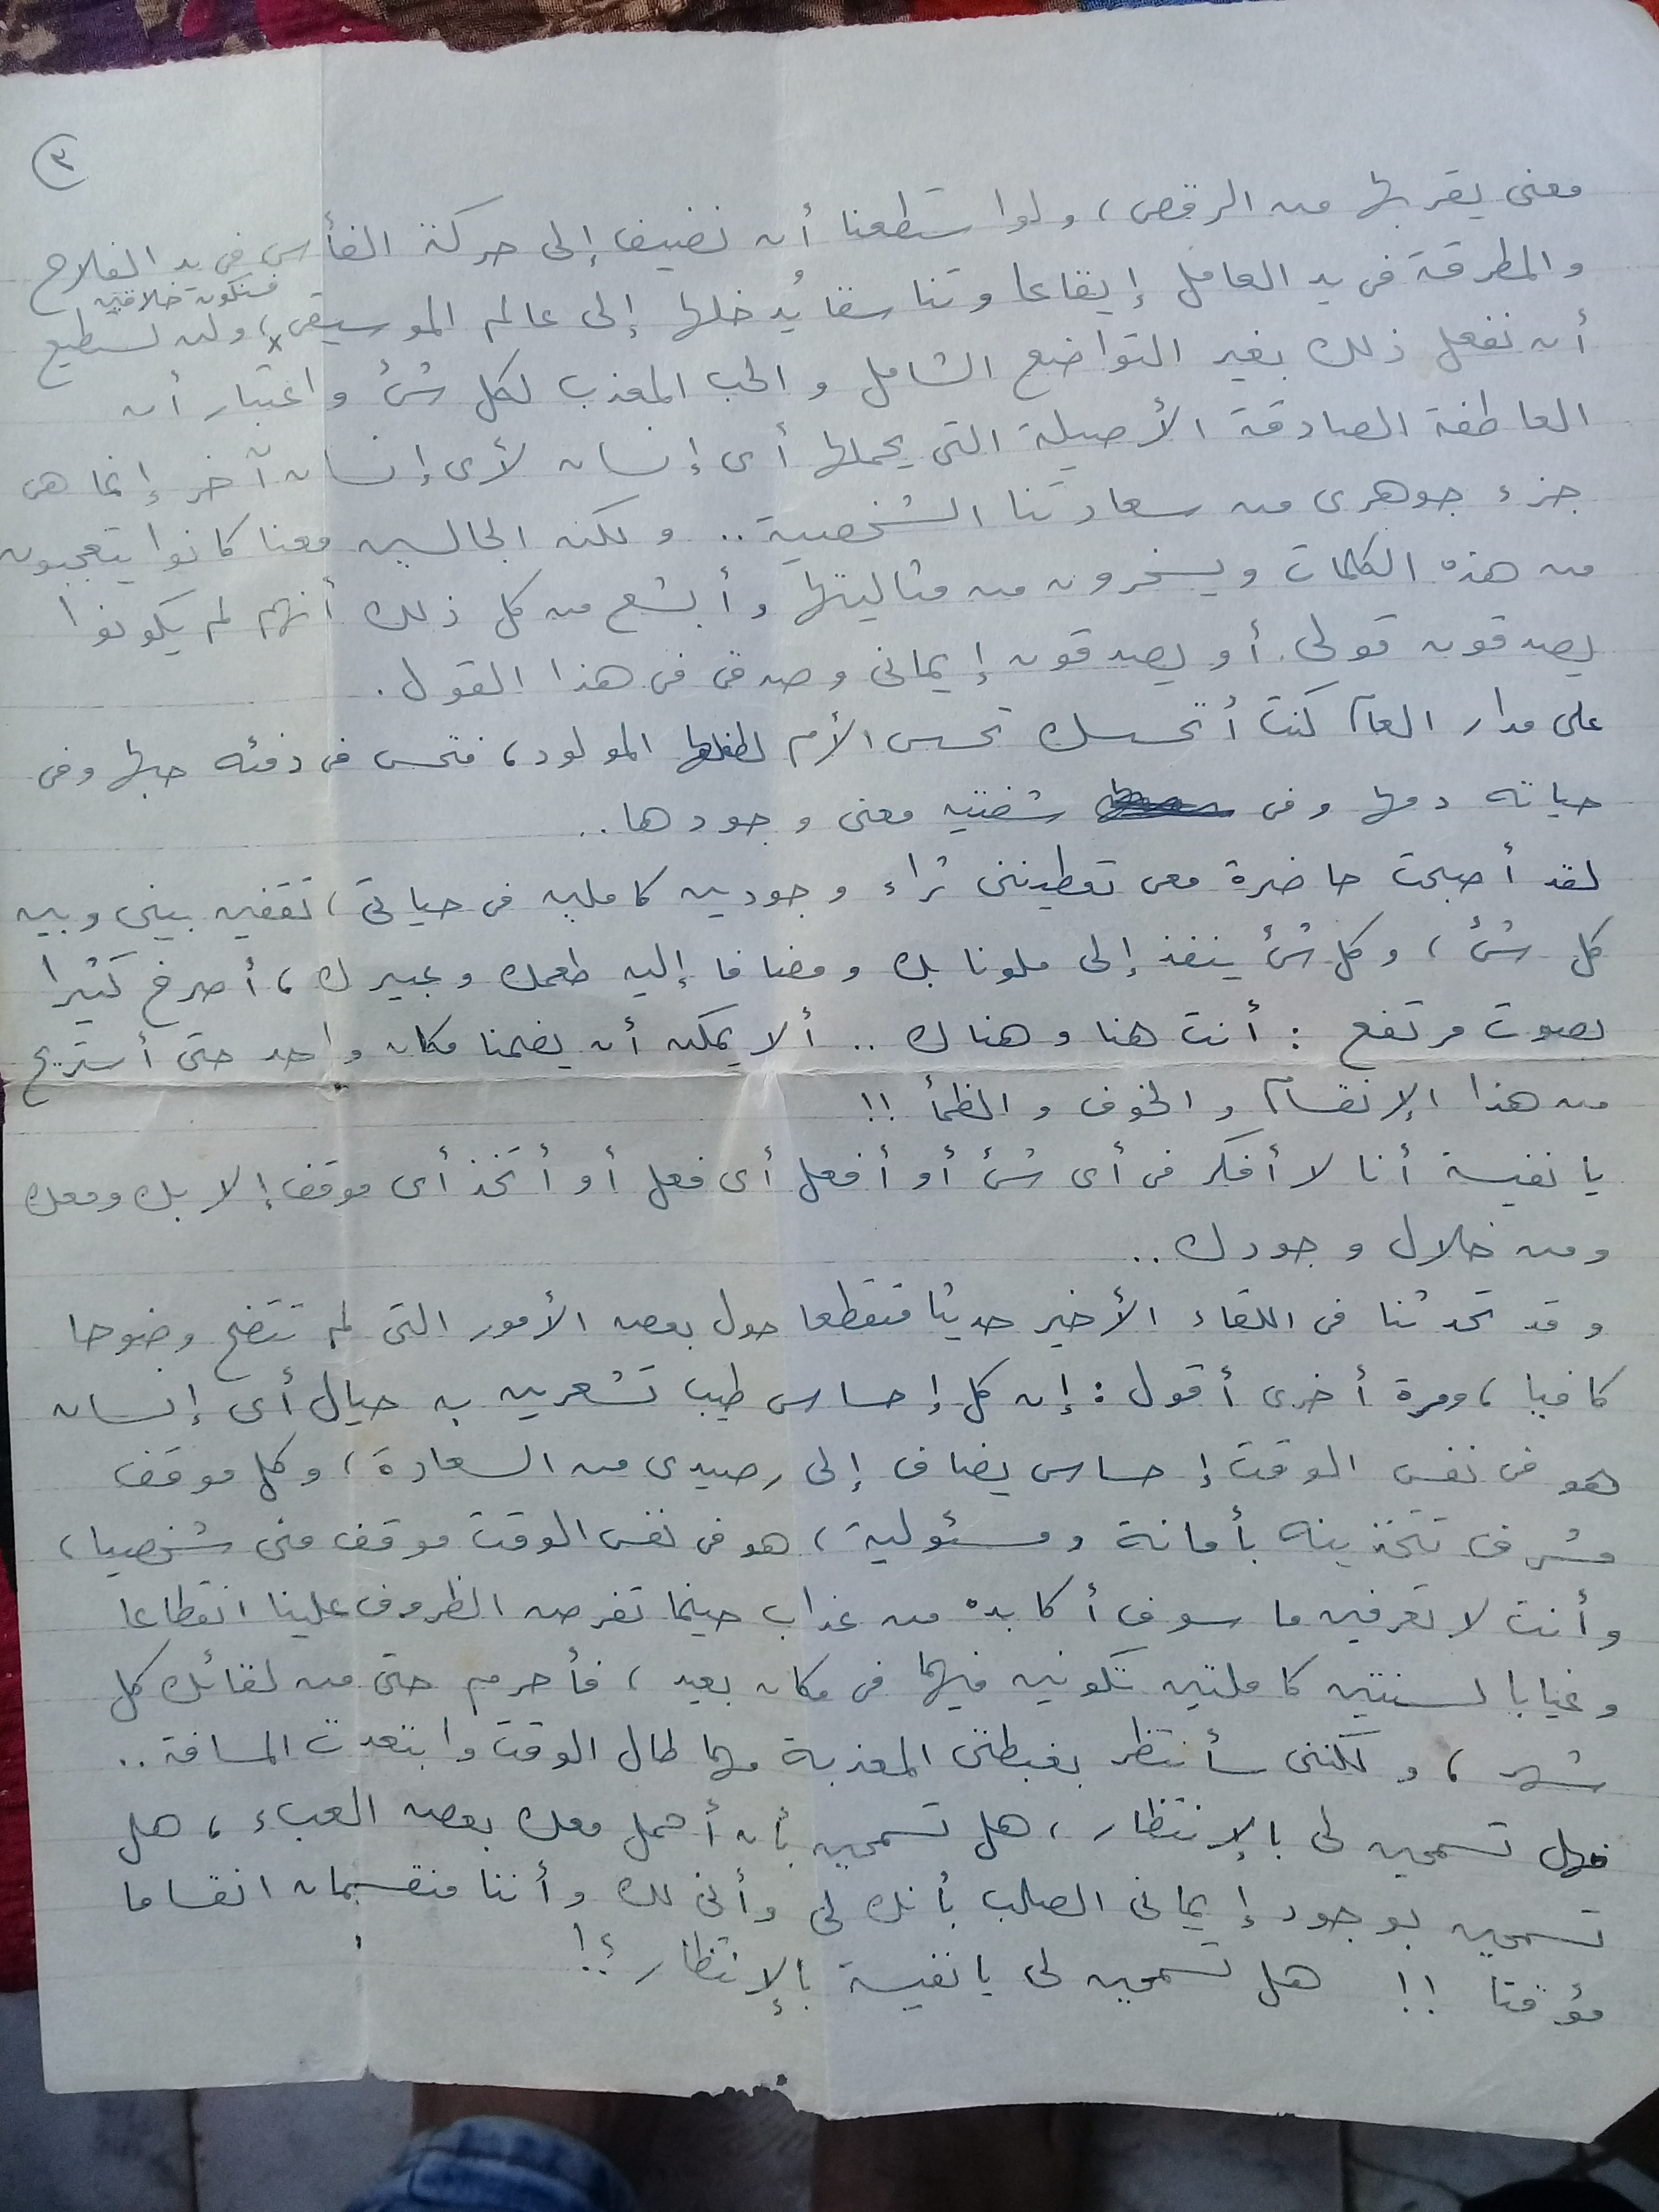 ٣
معنى يقربها من الرقص، ولو استطعنا أن نضيف إلى حركة الفأس فى يد الفلاح
والمطرقة فى يد العامل إيقاعا وتناسقا يُدخلها إلى عالم الموسيقى، فسنكون خلاقين ولن نستطيع
أن نفعل ذلك بغير التواضع الشامل والحب المعذب لكل شئ واعتبار أن
العاطفة الصادقة الأصيلة التى يحملها أى إنسان لأى إنسان آخر إنما هى
جزء جوهرى من سعادتنا الشخصية .. ولكن الجالسين معنا كانوا يتعجبون
من هذه الكلمات ويسخرون من مثاليتها وأبشع من كل ذلك أنهم لم يكونوا
يصدقون قولى أو يصدقون إيمانى وصدقى فى هذا القول .
على مدار العام كنت أتحسسك تحسس الأم لطفلها المولود، فتحس فى دفئه حبها وفى
حياته دمها وفى شفتيه معنى وجودها ..
لقد أصبحت حاضرة معى تعطيننى ثراء وجودين كاملين فى حياتى، تقفين بينى وبين
كل شئ، وكل شئ ينفذ إلى ملونا بك ومضافا إليه طعمك وعبيرك، أصرخ كثيرا
بصوت مرتفع : أنت هنا وهناك .. ألا يمكن أن يضمنا مكان واحد حتى أستريح
من هذا الإنقسام والخوف والظمأ !!
يا نفيسة أنا لا أفكر فى أى شئ أو أفعل أى فعل أو أتخذ أى موقف إلا بك ومعك
ومن خلال وجودك ..
وقد تحدثنا فى اللقاء الأخير حديثا متقطعا حول بعض الأمور التى لم تتضح وضوحا
كافيا، ومرة أخرى أقول : إن كل إحساس طيب تشعرين به حيال أى إنسان
هو فى نفس الوقت إحساس يضاف إلى رصيدى من السعادة، وكل موقف
مشرف تتخذينه بأمانة ومسئولية، هو فى نفس الوقت موقف منى شخصيا،
وأنت لا تعرفين ما سوف أكابده من عذاب حينما تفرض الظروف علينا انقطاعا
وغيابا لسنتين كاملتين تكونين فيهما فى مكان بعيد، فأحرم حتى من لقائك كل
شهر، ولكننى سأنتظر بغبطتى المعذبة مهما طال الوقت وابتعدت المسافة ..
فهل تسمحين لى بالإنتظار، هل تسمحين بأن أحمل معك بعض العبء، هل
تسمحين بوجود إيمانى الصلب بأنك لى وأنى لك وأننا منقسمان انقساما
مؤقتا !! هل تسمحين لى يا نفيسة بالإنتظار ؟!